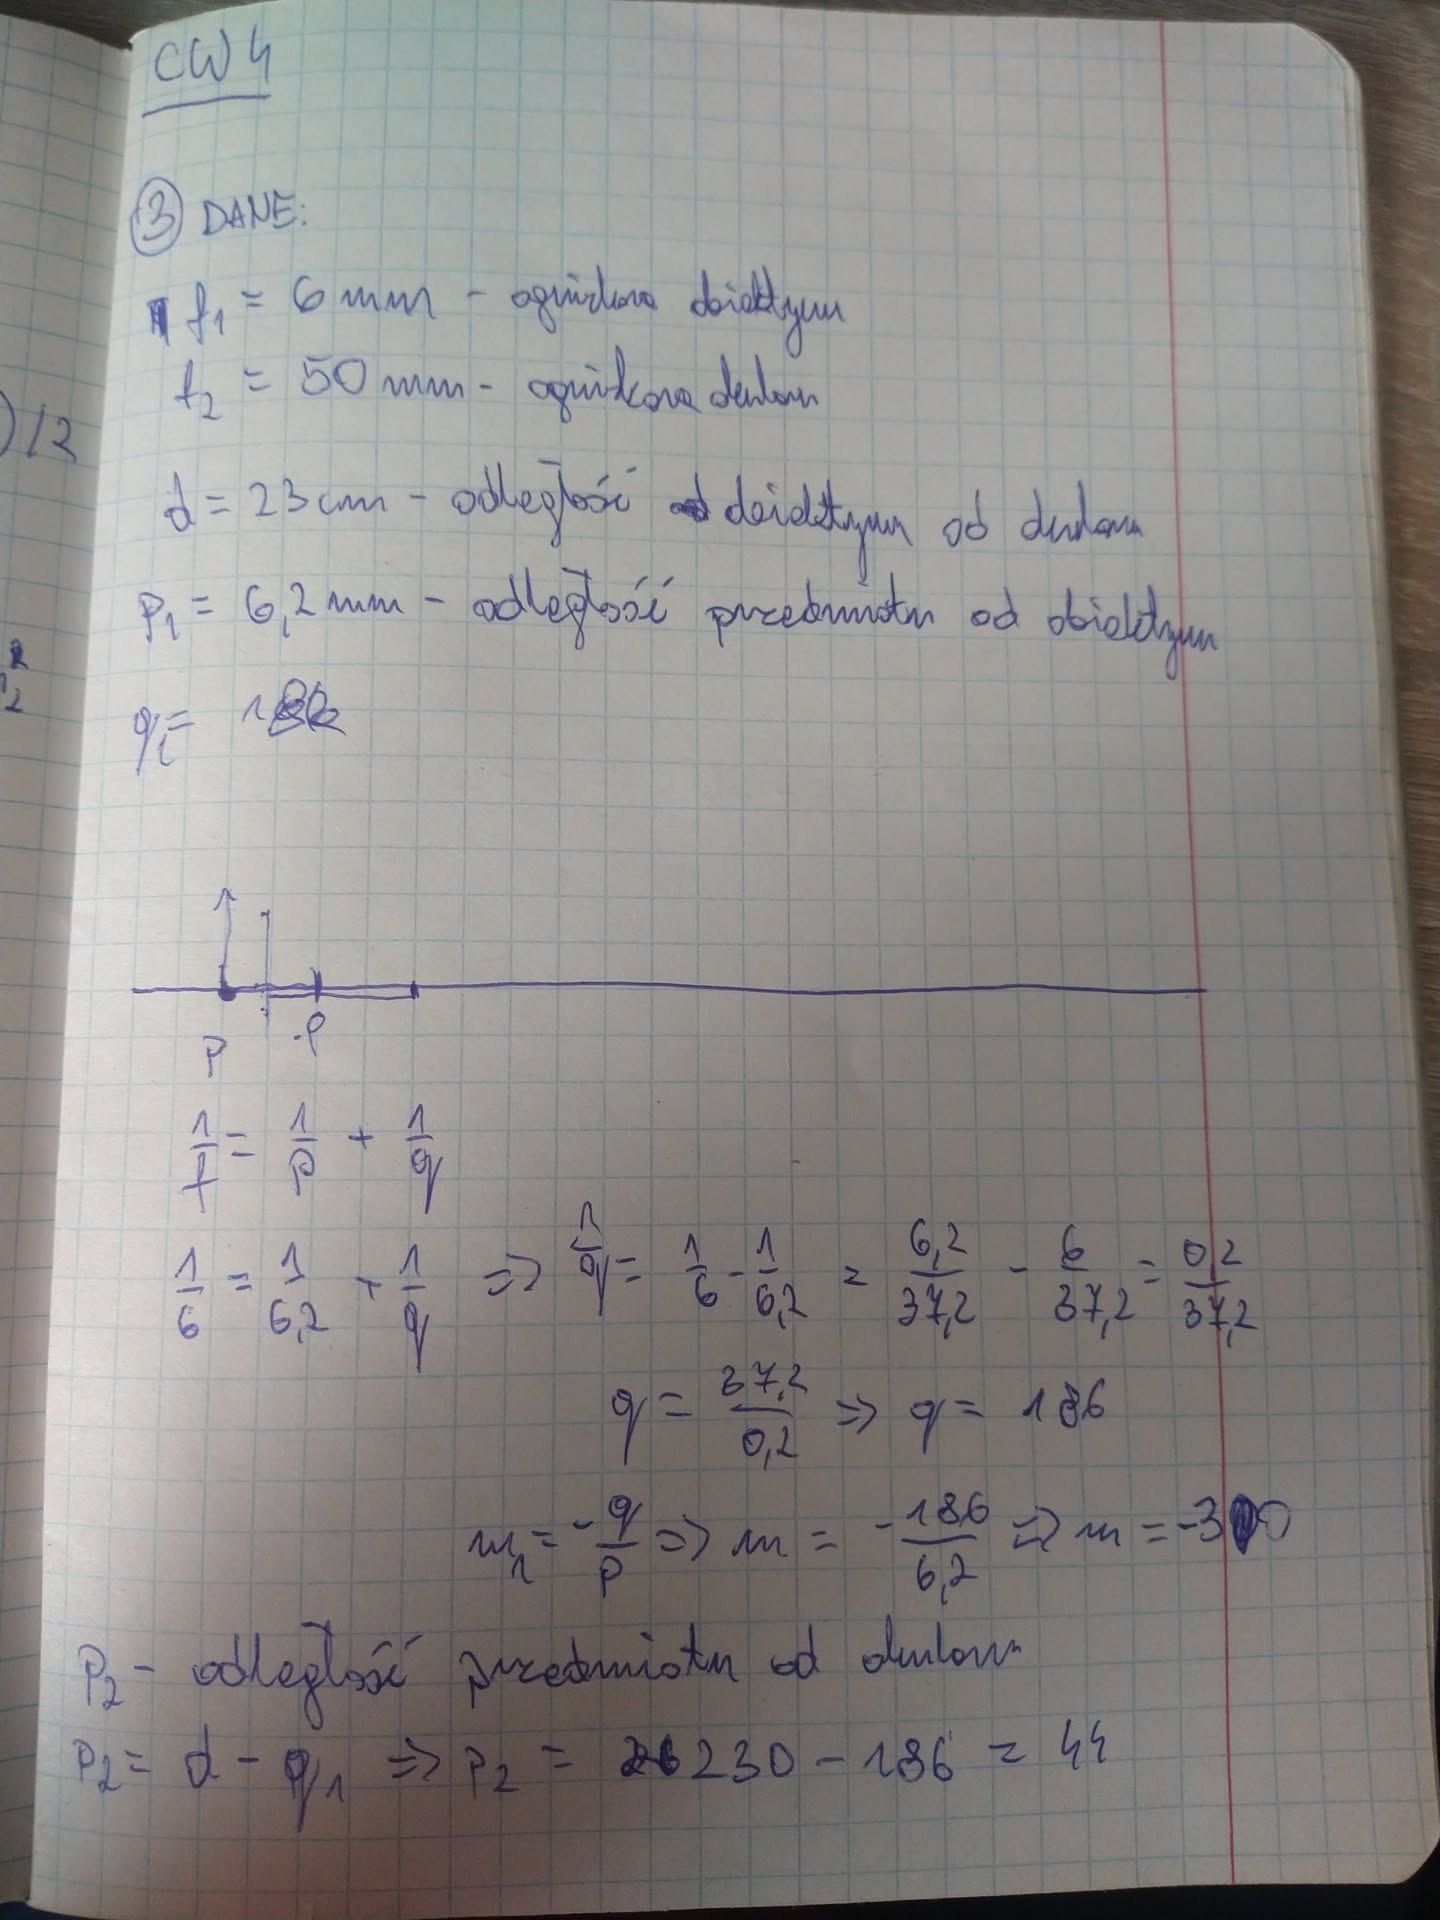 CW 4
③ DANE:
f₁ = 6 mm - ogniskowa obiektywu
f₂ = 50 mm - ogniskowa okularu
)/2
d = 23 cm - odległość obiektywu od okularu
p₁ = 6,2 mm - odległość przedmiotu od obiektywu
q₁ =
P f
1/f = 1/p + 1/q
1/6 = 1/6,2 + 1/q => 1/q = 1/6 - 1/6,2 = 6,2/37,2 - 6/37,2 = 0,2/37,2
q = 37,2/0,2 => q = 186
m₁ = -q/p => m = -186/6,2 => m = -30
P₂ - odległość przedmiotu od okularu
P₂ = d - q₁ => P₂ = 230 - 186 = 44